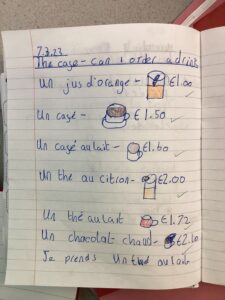 7.3.23
The cage - can I order a drink
Un jus d'orange - €1.00
Un café - €1.50
Un café au lait - €1.60
Un thé au citron - €2.00
Un thé au lait - €1.72
Un chocolat chaud - €2.10
Je prends un thé au lait